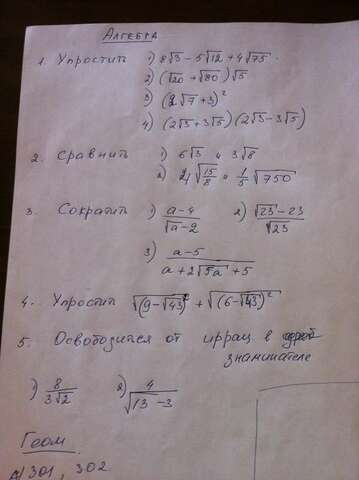 Алгебра
1. Упростит 1) 8√3 - 5√12 + 4√75.
2) (√20 + √80)√5
3) (2√7 + 3)²
4) (2√3 + 3√5)(2√3 - 3√5)
2. Сравнит 1) 6√3 и 3√8
2) 2√(15/8) и 1/5 √750
3. Сократит 1) (a-4)/(√a - 2) 2) (√23 - 23)/√23
3) (a-5)/(a + 2√5a + 5)
4. Упростит √(9-√43)² + √(6-√43)²
5. Освободится от иррац в
знаминателе
1) 8/(3√2) 2) 4/(√13 - 3)
Геом
№301, 302